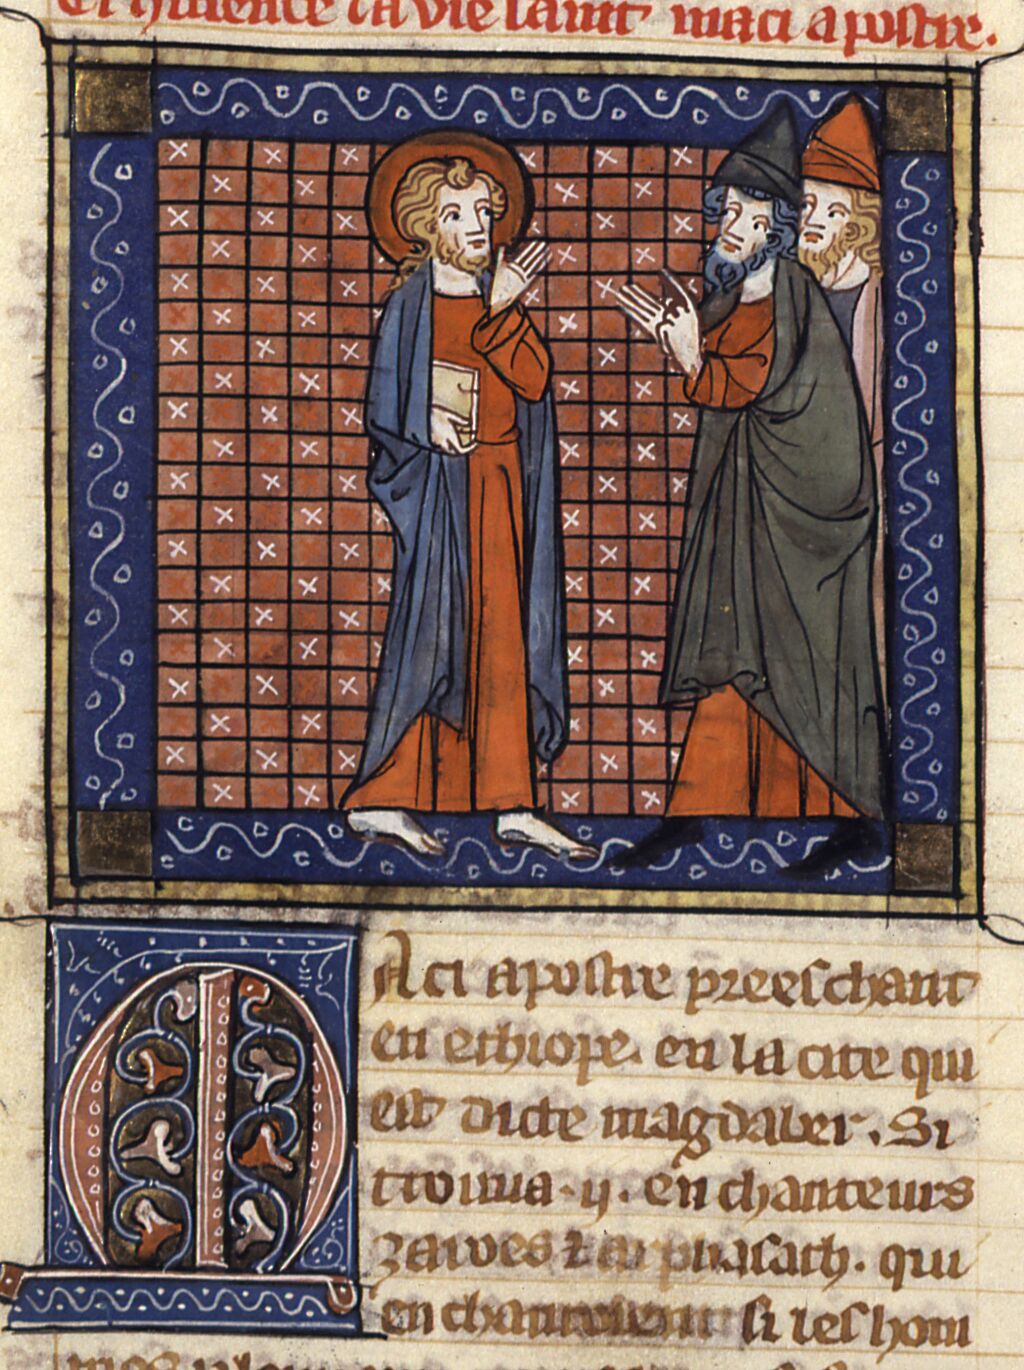 Ci 9mence la vie saint maci apostre.
Maci apostre preeschant
en ethiope. en la cite qui
est dicte magdaber. Si
trouua .ij. enchanteurs
zaroes ⁊ arphasath. qui
enchantoient si les hom